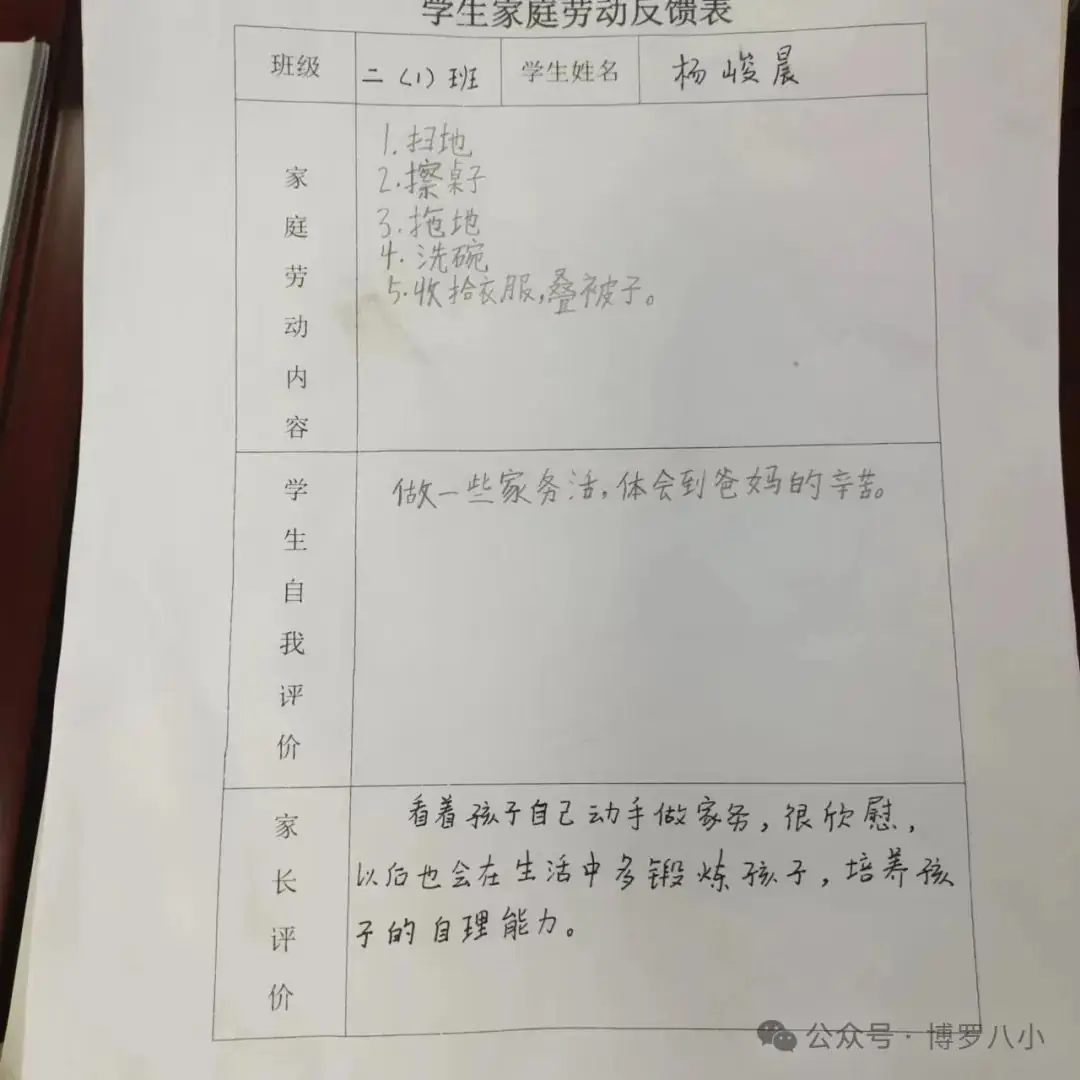 学生家庭劳动反馈表
班级 二（1）班 学生姓名 杨峻晨
家庭劳动内容
1.扫地
2.擦桌子
3.拖地
4.洗碗
5.收拾衣服,叠被子。
学生自我评价
做一些家务活,体会到爸妈的辛苦。
家长评价
看着孩子自己动手做家务,很欣慰,
以后也会在生活中多锻炼孩子,培养孩
子的自理能力。
公众号·博罗八小